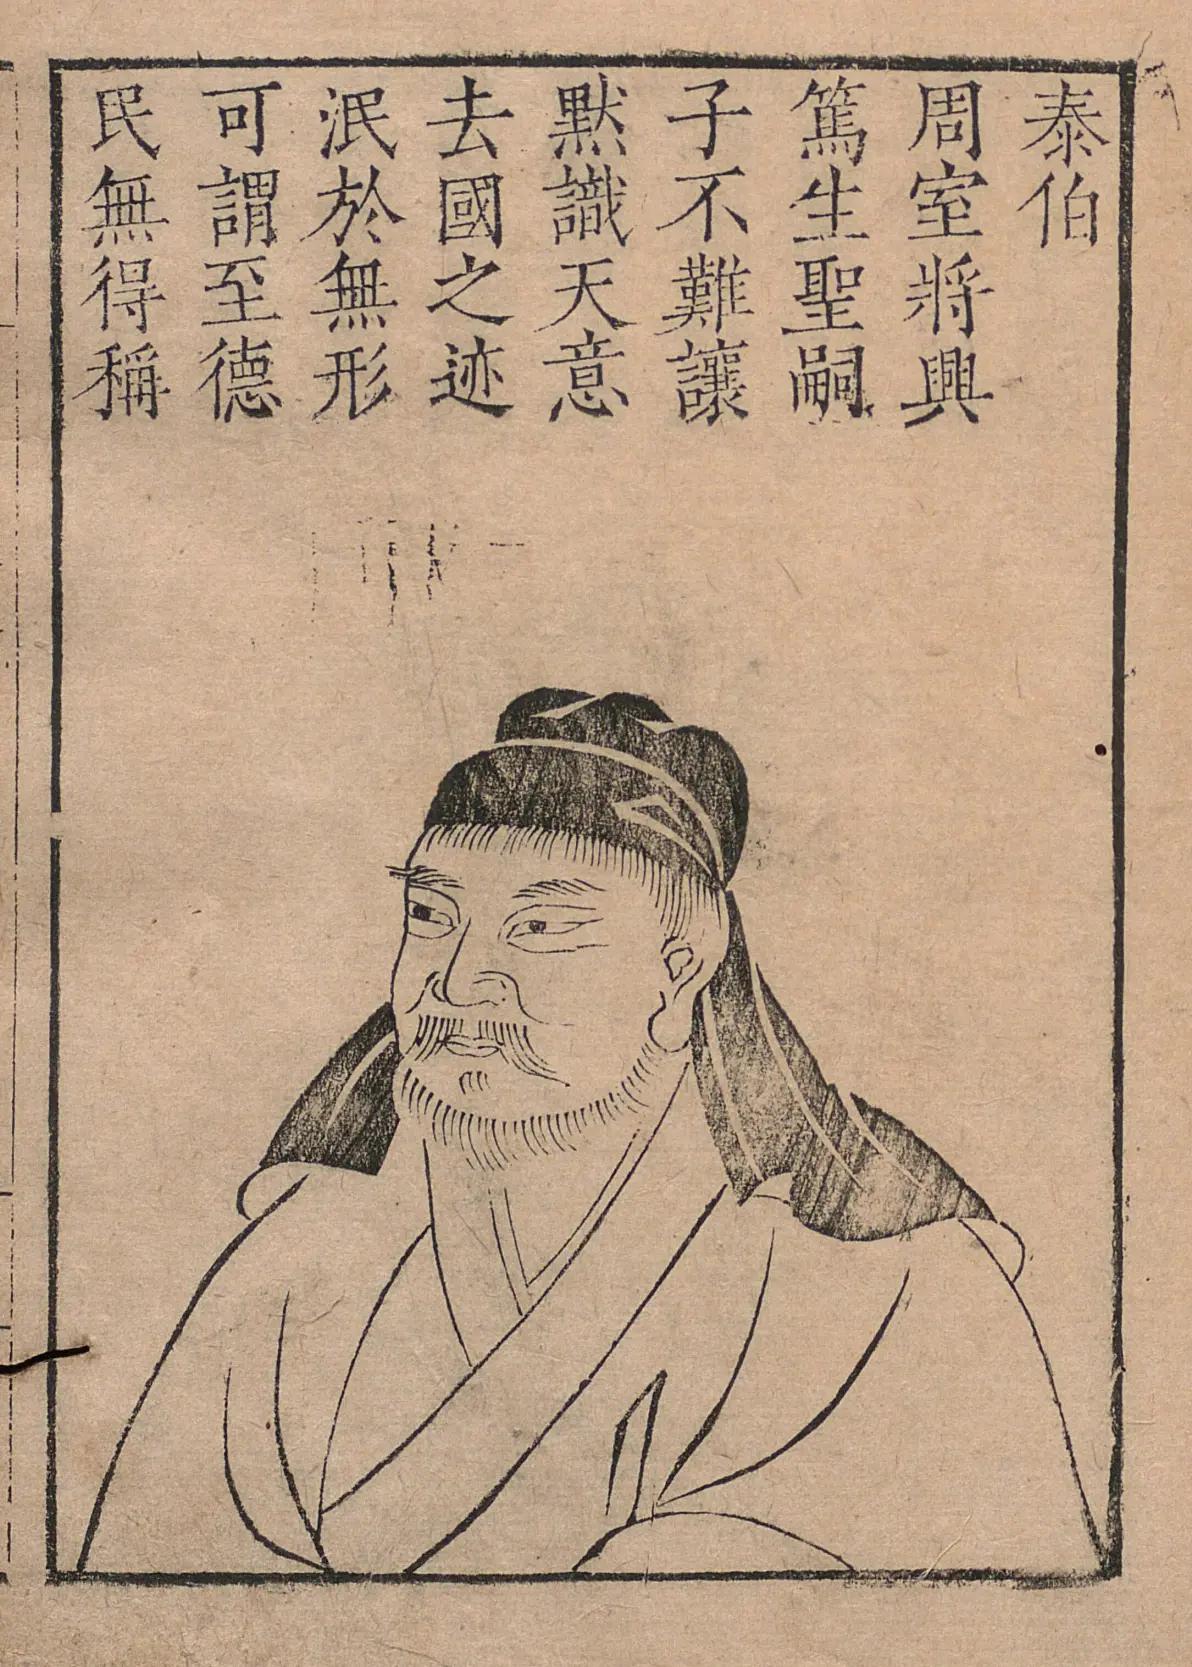 泰伯
周室將興
篤生聖嗣
子不難讓
默識天意
去國之迹
泯於無形
可謂至德
民無得稱